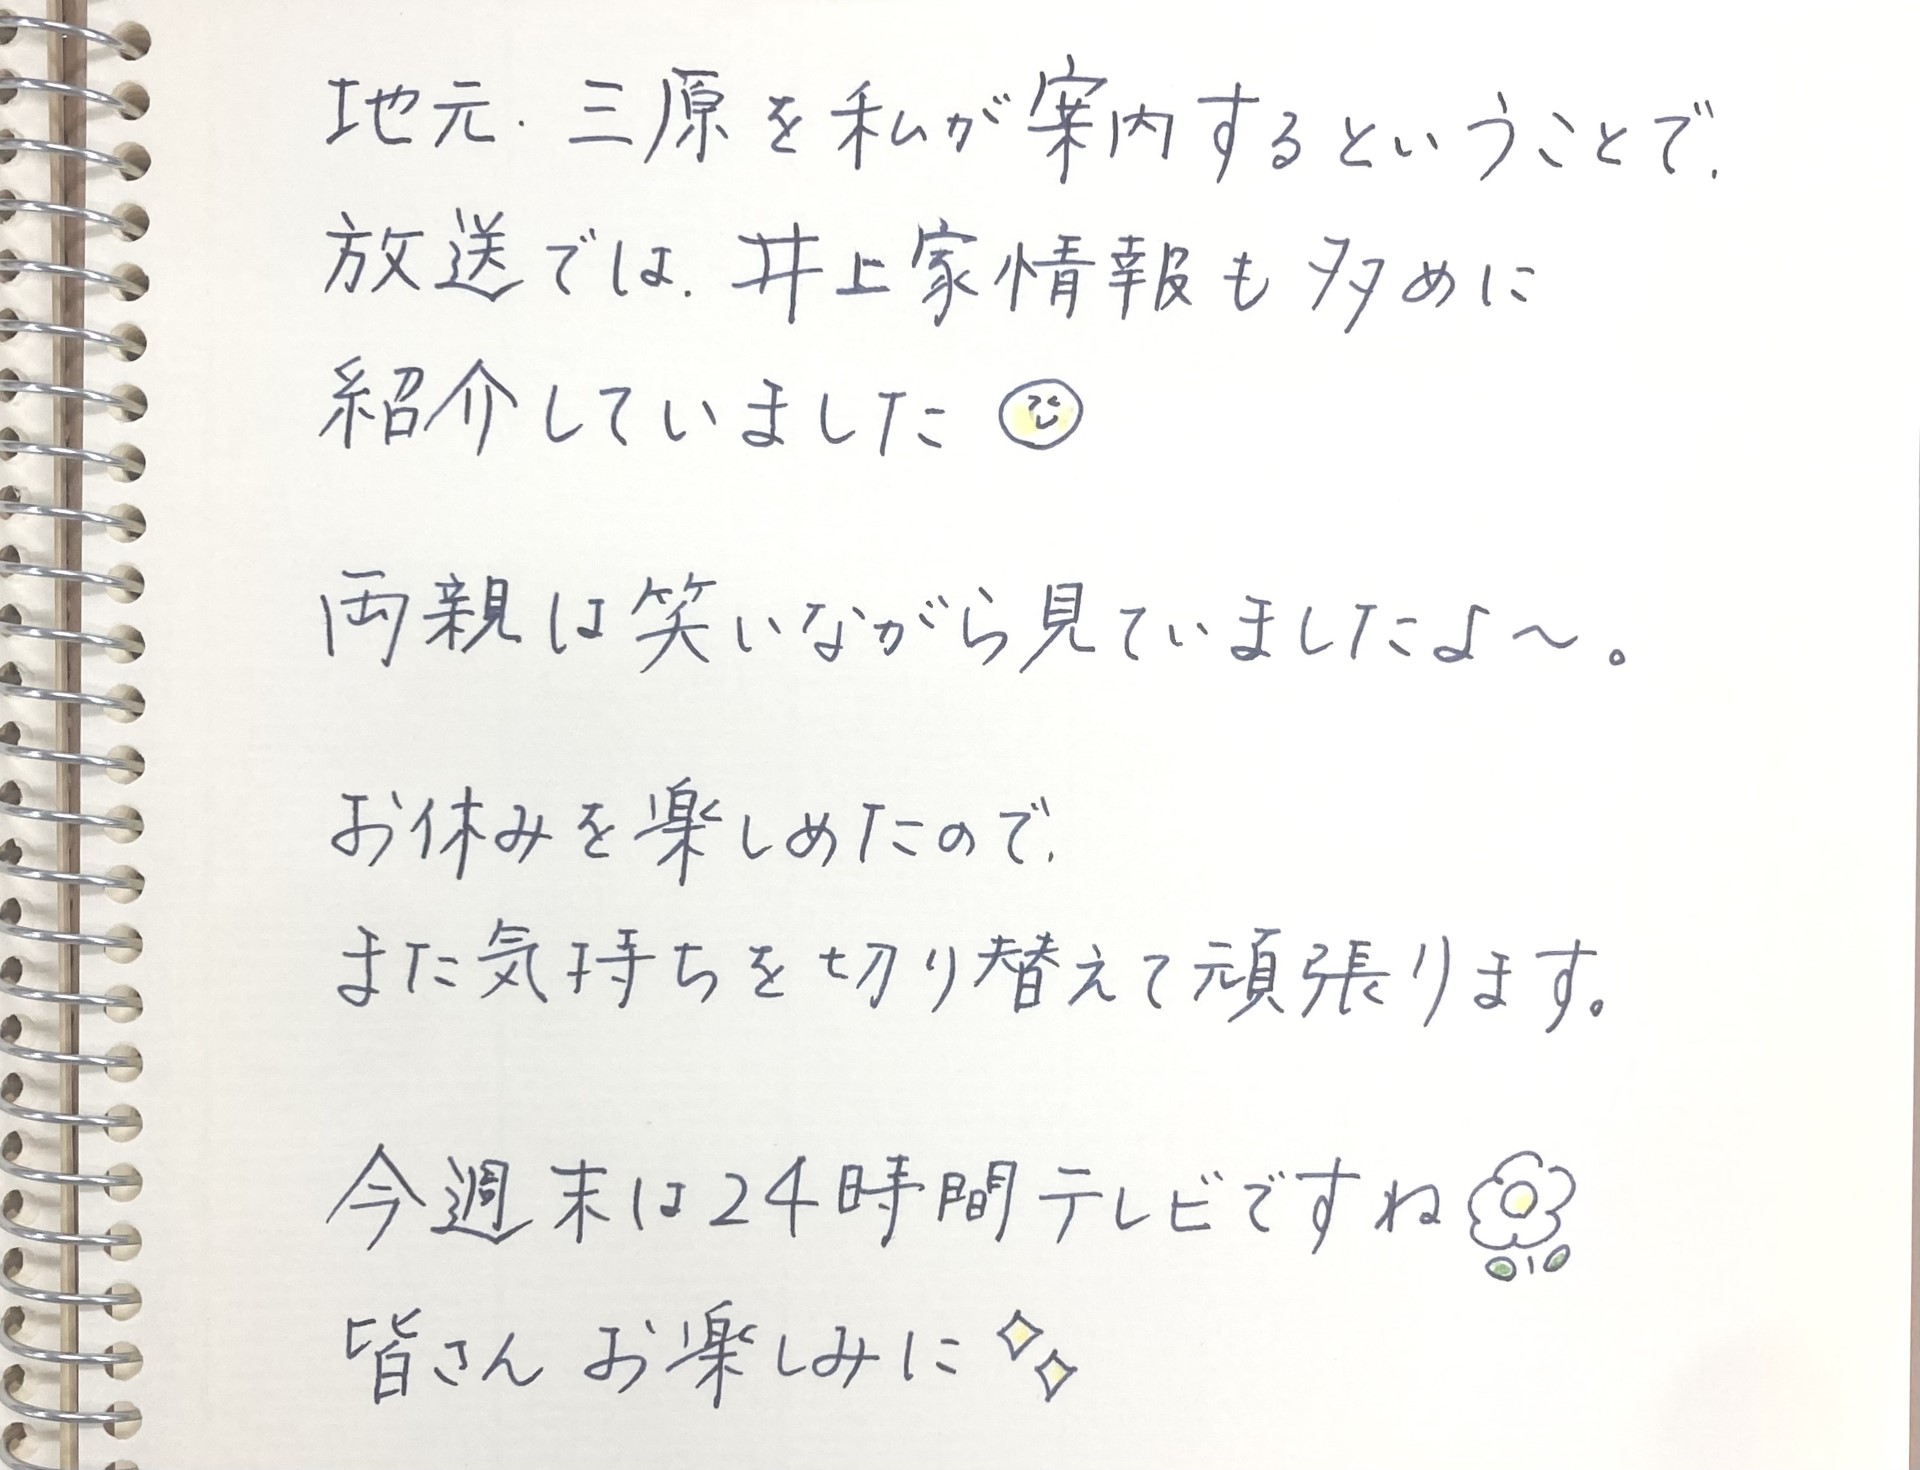 地元・三原を私が案内するということで、
放送では、井上家情報も多めに
紹介していました
両親は笑いながら見ていましたよ～。
お休みを楽しめたので、
また気持ちを切り替えて頑張ります。
今週末は24時間テレビですね
皆さんお楽しみに